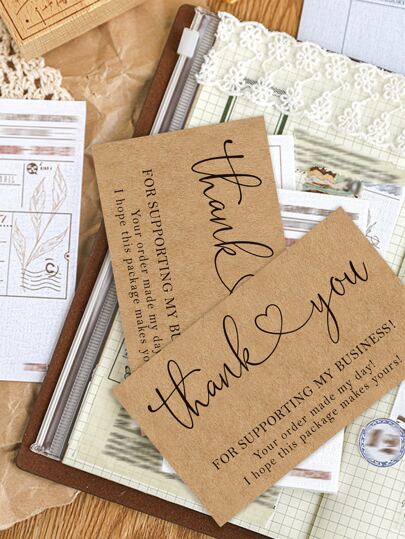 thank
FOR SUPPORTING MY BU
Your order made my day
I hope this package makes yo
thank you
FOR SUPPORTING MY BUSINESS!
Your order made my day!
I hope this package makes yours!